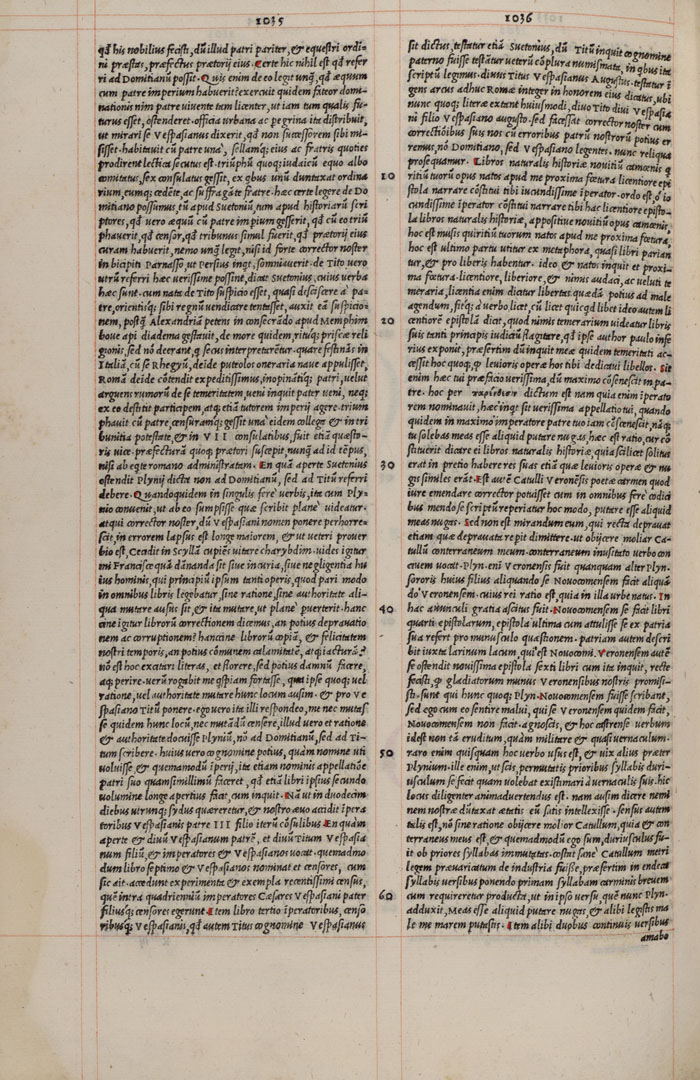 1035
qđ his nobilius fecisti, dũ illud patri pariter, & equestri ordi=
ni præstas, præfectus prætorij eius. Certe hic nihil est qđ refer
ri ad Domitianũ possit. Quis enim de eo legit unq̃, qđ æquum
cum patre imperium habuerit? exercuit quidem fateor domi=
nationis nim patre uiuente tam licenter, ut iam tum qualis fu=
turus esset, ostenderet. officia urbana ac pegrina ita distribuit,
ut mirari se Vespasianus dixerit, qđ non successorem sibi mi=
sisset. habitauit cũ patre una, sellamq; eius ac fratris quoties
prodirent lectica secutus est. triũphũ quoq; iudaicũ equo albo
comitatus, sex consulatus gessit, ex qbus unũ duntaxat ordina
rium, cumq; cedẽte, ac suffragãte fratre. hæc certe legere de Do
mitiano possumus, tũ apud Suetoniũ, tum apud historiarũ scri
ptores, qđ uero æquũ cũ patre impium gesserit, qđ cũ eo triũ
phauerit, qđ censor, qđ tribunus simul fuerit, qđ prætorij eius
curam habuerit, nemo unq̃ legit, nisi id forte corrector noster
in bicipiti Parnasso, ut Persius inqt, somniauerit. de Tito uero
utrũ referri hæc uerissime possint, dicat Suetonius, cuius uerba
hæc sunt. cum nata de Tito suspicio esset, quasi desciscere a pa=
tre, orientisq; sibi regnũ uendicare tentasset, auxit eã suspicio=
nem, postq̃ Alexandriã petens in consecrãdo apud Memphim
boue api diadema gestauit, de more quidem, rituq; priscæ reli
gionis, sed nõ deerant, q secus interpretarẽtur. quare festinãs in
Italiã, cũ se Rhegiũ, deide puteolos oneraria naue appulisset,
Romã deide cõtendit expeditissimus, inopinãtiq; patri, uelut
arguens rumorũ de se temeritatem, ueni inquit pater ueni, neq;
ex eo destitit participem, atq; etiã tutorem imperij agere. trium
phauit cũ patre, cẽsuramq; gessit una. eidem collega & in tri
bunitia potestate, & in VII consulatibus, fuit etiã quæsto=
ris uice. præfecturã quoq; prætori suscepit, nunq̃ ad id tẽpus,
nisi ab eqte romano administratam. En quã aperte Suetonius
ostendit Plynij dicta non ad Domitianũ, sed ad Titũ referri
debere. Quandoquidem in singulis fere uerbis, ita cum Ply=
nio conuenit, ut ab eo sumpsisse quæ scribit plane uideatur.
atqui corrector noster, dũ Vespasiani nomen ponere perhorre=
scit, in errorem lapsus est longe maiorem, & ut ueteri prouer
bio est, Cecidit in Scyllã cupiẽs uitare charybdim. uides igitur
mi Francisce quã dãnanda sit siue incuria, siue negligentia hu
ius hominis, qui principiũ ipsum tanti operis, quod pari modo
in omnibus libris legebatur, sine ratione, sine authoritate ali=
qua mutare ausus sit, & ita mutare, ut plane peruerterit. hanc
cine igitur librorũ correctionem dicemus, an potius deprauatio
nem ac corruptionem? hancine librorũ copiã, & felicitatem
nostri temporis, an potius cõmunem calamitatẽ, atq; iacturã?
nõ est hoc excitari literas, et florere, sed potius damnũ facere,
atq; perire. uerũ rogabit me qspiam fortasse, qua ipse quoq; uel
ratione, uel authoritate mutare hunc locum ausim. & pro Ve
spasiano Titũ ponere. ego uero ita illi respondeo, me nec mutas=
se quidem hunc locũ, nec mutãdũ censere, illud uero et ratione
& authoritate docuisse Plyniũ, nõ ad Domitianũ, sed ad Ti=
tum scribere. huius uero cognomine potius, quàm nomine uti
uoluisse & quemamodũ iperij, ita etiam nominis appellatiõe
patri suo quamsimillimũ faceret, qđ etiã libri ipsius secundo
uolumine longe apertius facit, cum inquit. Nã ut in duodecim
diebus utrunq; sydus quæreretur, & nostro æuo accidit ipera
toribus Vespasianis patre III filio iterũ cõsulibus. En quàm
aperte & diuũ Vespasianum patrẽ, et diuũ Titum Vespasia
num filiũ, & imperatores & Vespasianos uocat. quemadmo
dum libro septimo & Vespasianos nominat et censores, cum
sic ait. accedunt experimenta & exempla recentissimi census,
quẽ intra quadrienniũ imperatores Cæsares Vespasiani pater
filiusq; censores egerunt. Item libro tertio iperatoribus, censo
ribusq; Vespasianis, qđ autem Titus cognomine Vespasianus
10
20
30
40
50
60
1036
sit dictus, testatur etiã Suetonius, dũ Titũ inquit cognomine
paterno fuisse testãtur ueterũ cõplura numismata, in qbus ita
scriptũ legimus. diuus Titus Vespasianus Augustus. testatur i
gens arcus adhuc Romæ integer in honorem eius dicatus, ubi
nunc quoq; literæ extent huiusmodi, diuo Tito diui Vespasia
ni filio Vespasiano augusto. sed facessat corrector noster cum
correctiõibus suis nos cũ erroribus patrũ nostrorũ potius er
remus, nõ Domitiano, sed Vespasiano legentes. nunc reliqua
prosequamur. Libros naturalis historiæ nouitiũ camœnis q̃
ritiũ tuorũ opus natos apud me proxima fœtura licentiore epi
stola narrare cõstitui tibi iucundissime iperator. ordo est q̃ io
cundissime iperator cõstitui narrare tibi hac licentiore episto=
la libros naturalis historiæ, appositiue nouitiũ opus camœnis,
hoc est musis quiritũ tuorum natos apud me proxima fœtura,
hoc est ultimo partu utitur ex metaphora, quasi libri parian
tur, & pro liberis habentur. ideo & natos inquit et proxi=
ma fœtura. licentiore, liberiore, & nimis audaci, ac ueluti te
meraria, licentia enim dicitur libertas quædã potius ad male
agendum, fitq; a uerbo licet, cũ licet quicqd libet ideo autem li
centiorẽ epistolã dicit, quod nimis temerarium uideatur libris
suis tanti principis iudiciũ flagitare, qđ ipse author paulo infe
rius exponit, præsertim dũ inquit meæ quidem temeritati ac=
cessit hoc quoq, q̃ leuioris operæ hos tibi dedicaui libellos. Sit
enim hæc tui præfatio uerissima, dũ maximo cõsenescit in pa=
tre. hoc per dictum est nam quia enim iperato
rem nominauit, hæc inq; sit uerissima appellatio tui, quando
quidem in maximo imperatore patre tuo iam cõsenescit, nãq;
tu solebas meas esse aliquid putare nugas, hæc est ratio, cur cõ
stituerit dicare ei libros naturalis historiæ, quia scilicet solitus
erat in pretio habere res suas etiã quæ leuioris operæ & nu
gis similes erãt. Est autẽ Catulli Veronẽsis poetæ carmen quod
iure emendare corrector potuisset cum in omnibus fere codici
bus mendose scriptũ reperiatur hoc modo, putare esse aliquid
meas nugas. Sed non est mirandum cum, qui recta deprauat
etiam quæ deprauata repit dimittere. ut obijcere moliar Ca=
tullũ conterraneum meum. conterraneum inusitato uerbo con
ciuem uocat. Plyn. enĩ Veronensis fuit quanquam alter Plyn.
sororis huius filius aliquando se Nouocomensem facit aliquã
do Veronensem. cuius rei ratio est, quia in illa urbe natus. In
hac adnunculi gratia ascitus fuit. Nouocomensem se facit libri
quarti epistolarum, epistola ultima cum attulisse se ex patria
sua refert pro munusculo quæstionem. patriam autem descri
bit iuxta larinum lacum, qui est Nouocomi. Veronensem autẽ
se ostendit nouissima epistola sexti libri cum ita inquit, recte
fecisti, q̃ gladiatorum munus Veronensibus nostris promisi=
sti. sunt qui hunc quoq; Plyn. Nouocomensem fuisse scribant,
sed ego cum eo sentire malui, qui se Veronensem quidem facit,
Nouocomensem non facit. agnoscis, & hoc castrense uerbum
idest non tã eruditum, quàm militare & quasi uernaculum.
raro enim quisquam hoc uerbo usus est, & uix alius præter
Plynium. ille enim, ut scis, permutatis prioribus syllabis duri=
usculum se fecit quam uolebat existimari à uernaculis suis. hic
locus diligenter animaduertendus est. nam ausim dicere nemi
nem nostræ dũtaxat ætatis eũ satis intellexisse. sensus autem
talis est, nõ sine ratione obijcere molior Catullum, quia & con
terraneus meus est, & quemadmodũ ego sum, duriusculus fu=
it ob priores syllabas immutatas. cõstat sanè Catullum metri
legem præuaricatum de industria fuisse, præsertim in hendeca
syllabis uersibus ponendo primam syllabam carminis breuem
cum requireretur producta, ut in ipso uersu, quẽ nunc Plyn.
adduxit, Meas esse aliquid putare nugas, & alibi legistis ma
le me marem putastis. Item alibi duobus continuis uersibus
amabo